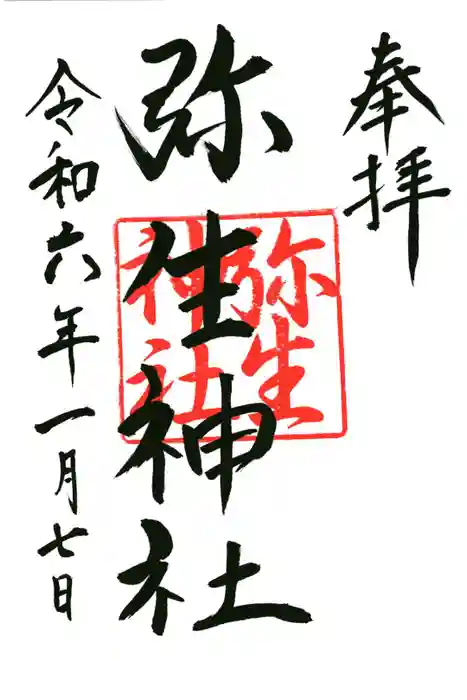 奉拝
弥生神社
弥生
神社
令和六年一月七日